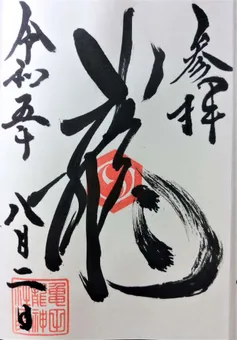 参拝
龍
令和五年八月二日
亀山
龍神